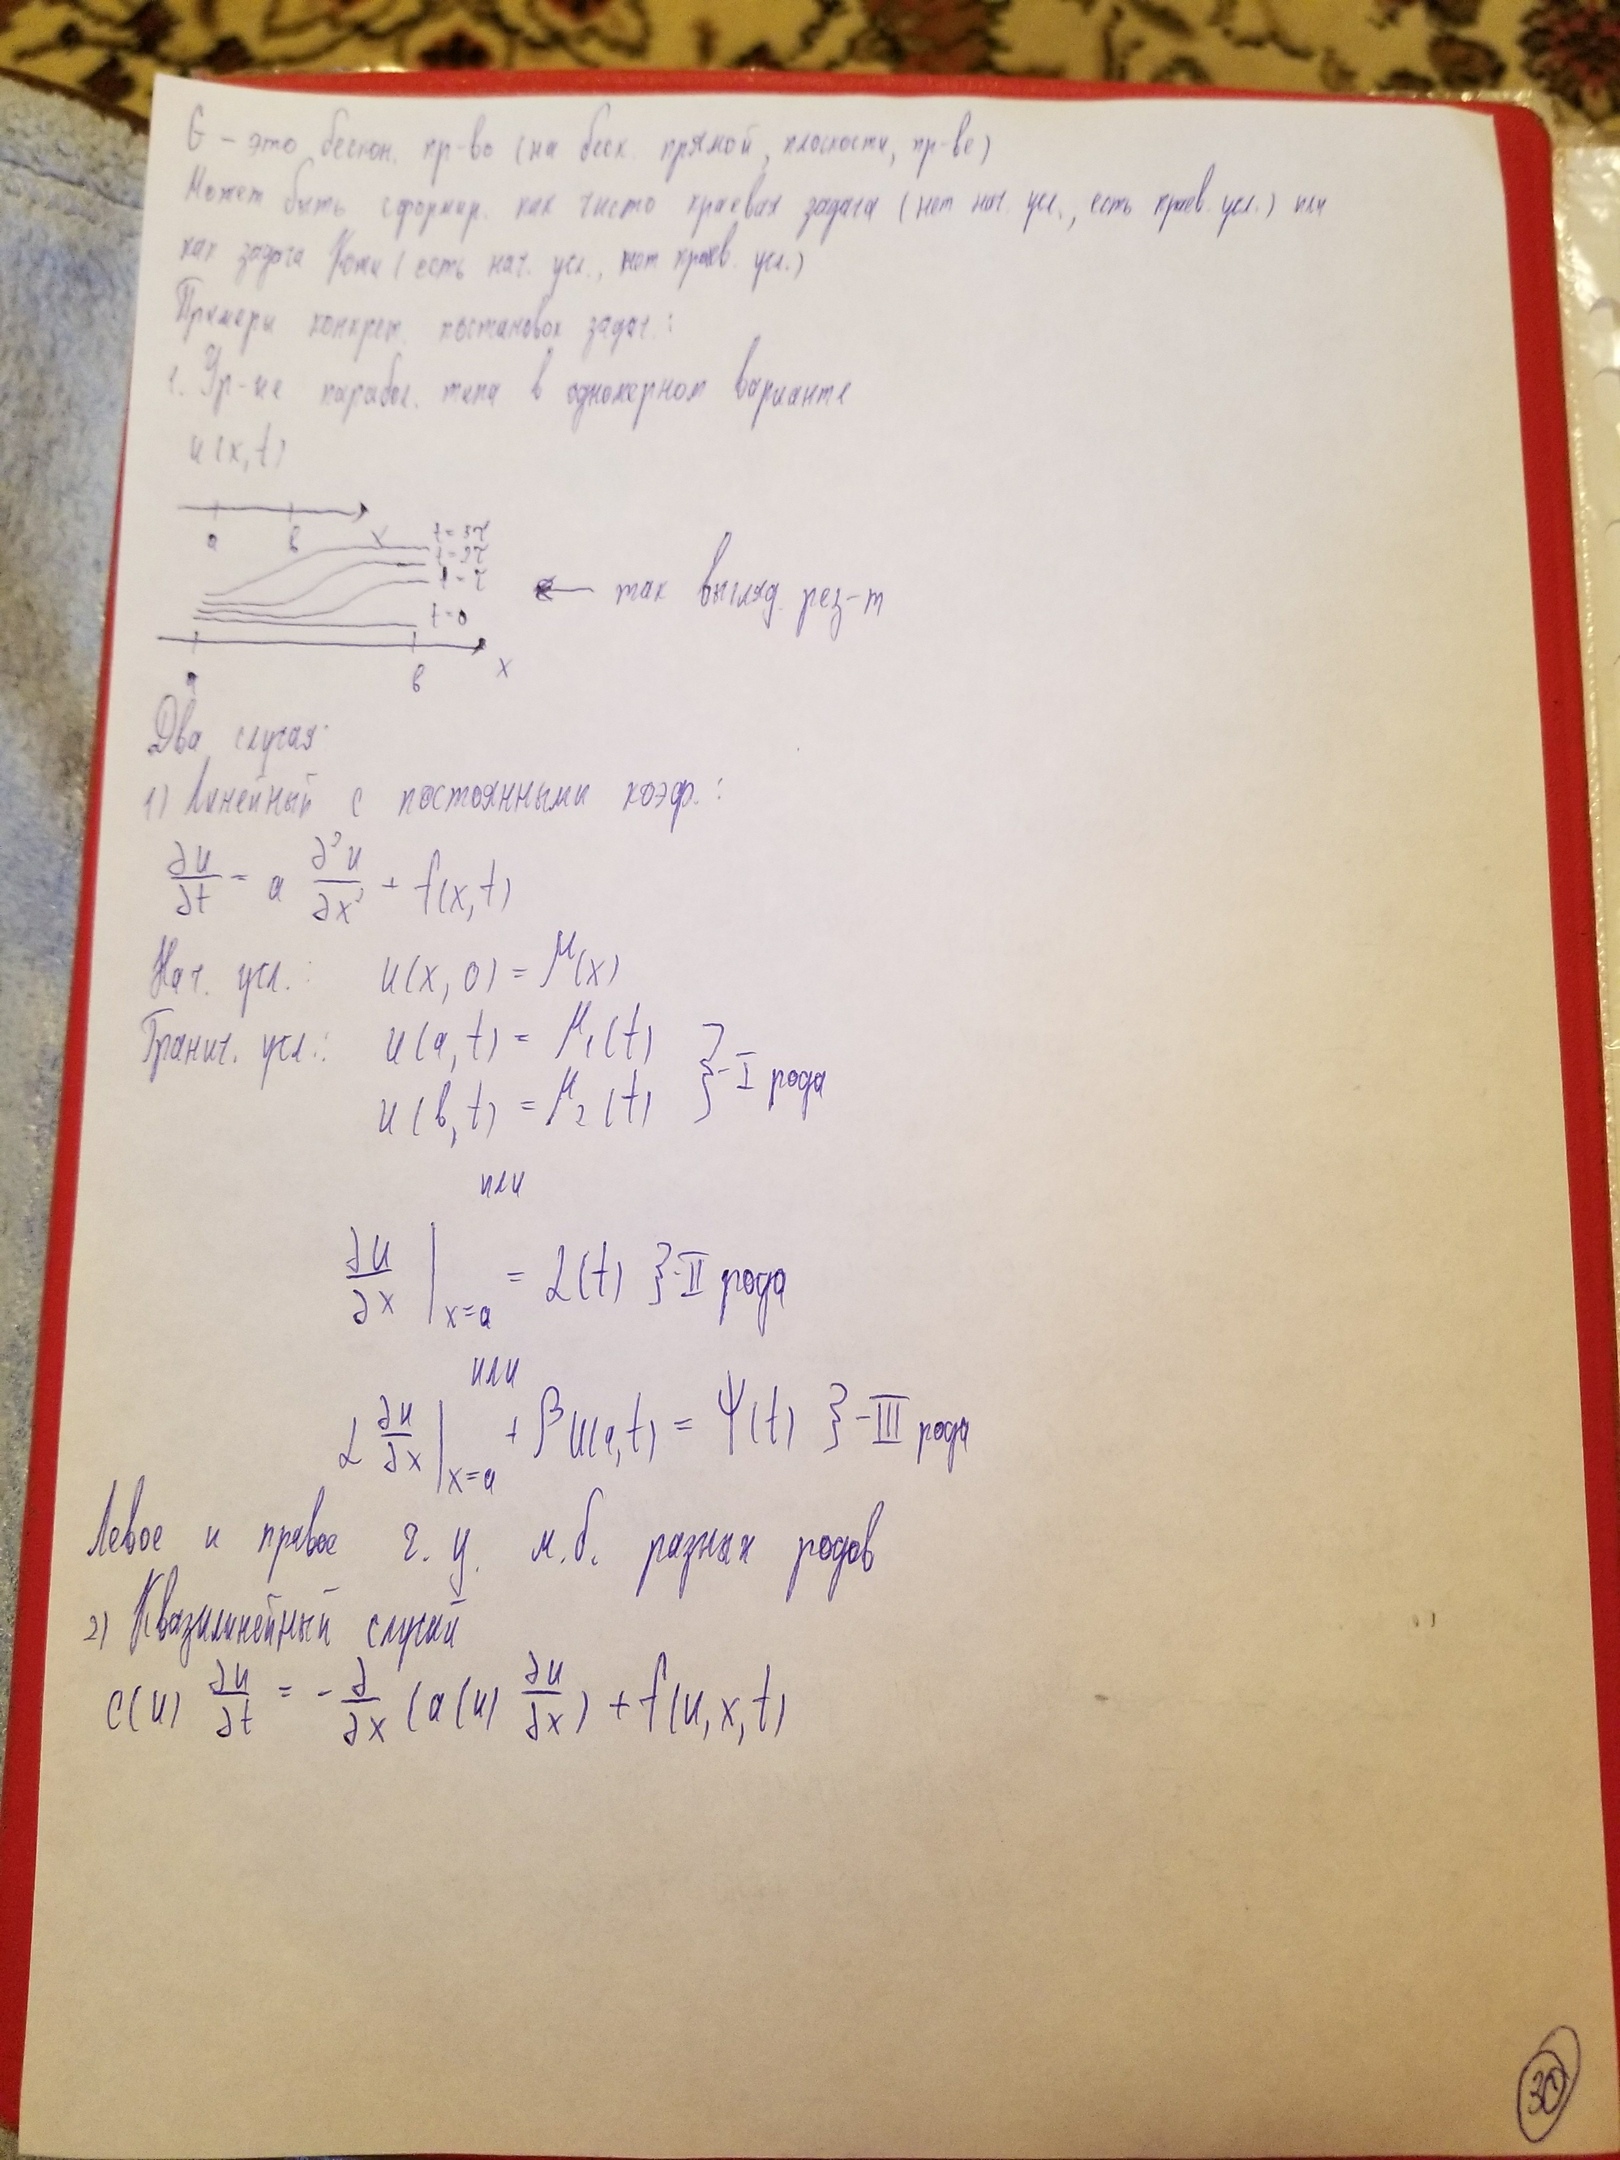 G – это бескон. пр-во (на беск. прямой, плоскости, пр-ве)
Может быть сформир. как чисто краевая задача (нет нач. усл., есть краев. усл.) или
как задача Коши (есть нач. усл., нет краев. усл.)
Примеры конкрет. постановок задач:
1. Ур-ие парабол. типа в одномерном варианте
u(x,t)
a b x
t=3τ
t=2τ
t=τ
t=0
← так выгляд. рез-т
a b x
Два случая:
1) Линейный с постоянными коэф.:
∂u/∂t = a ∂²u/∂x² + f(x,t)
Нач. усл.: u(x,0) = μ(x)
Гранич. усл.: u(a,t) = μ₁(t)
u(b,t) = μ₂(t) } - I рода
или
∂u/∂x |x=a = α(t) } - II рода
или
α ∂u/∂x |x=a + β u(a,t) = ψ(t) } - III рода
Левое и правое г. у. м.б. разных родов
2) Квазилинейный случай
c(u) ∂u/∂t = - ∂/∂x (a(u) ∂u/∂x) + f(u,x,t)